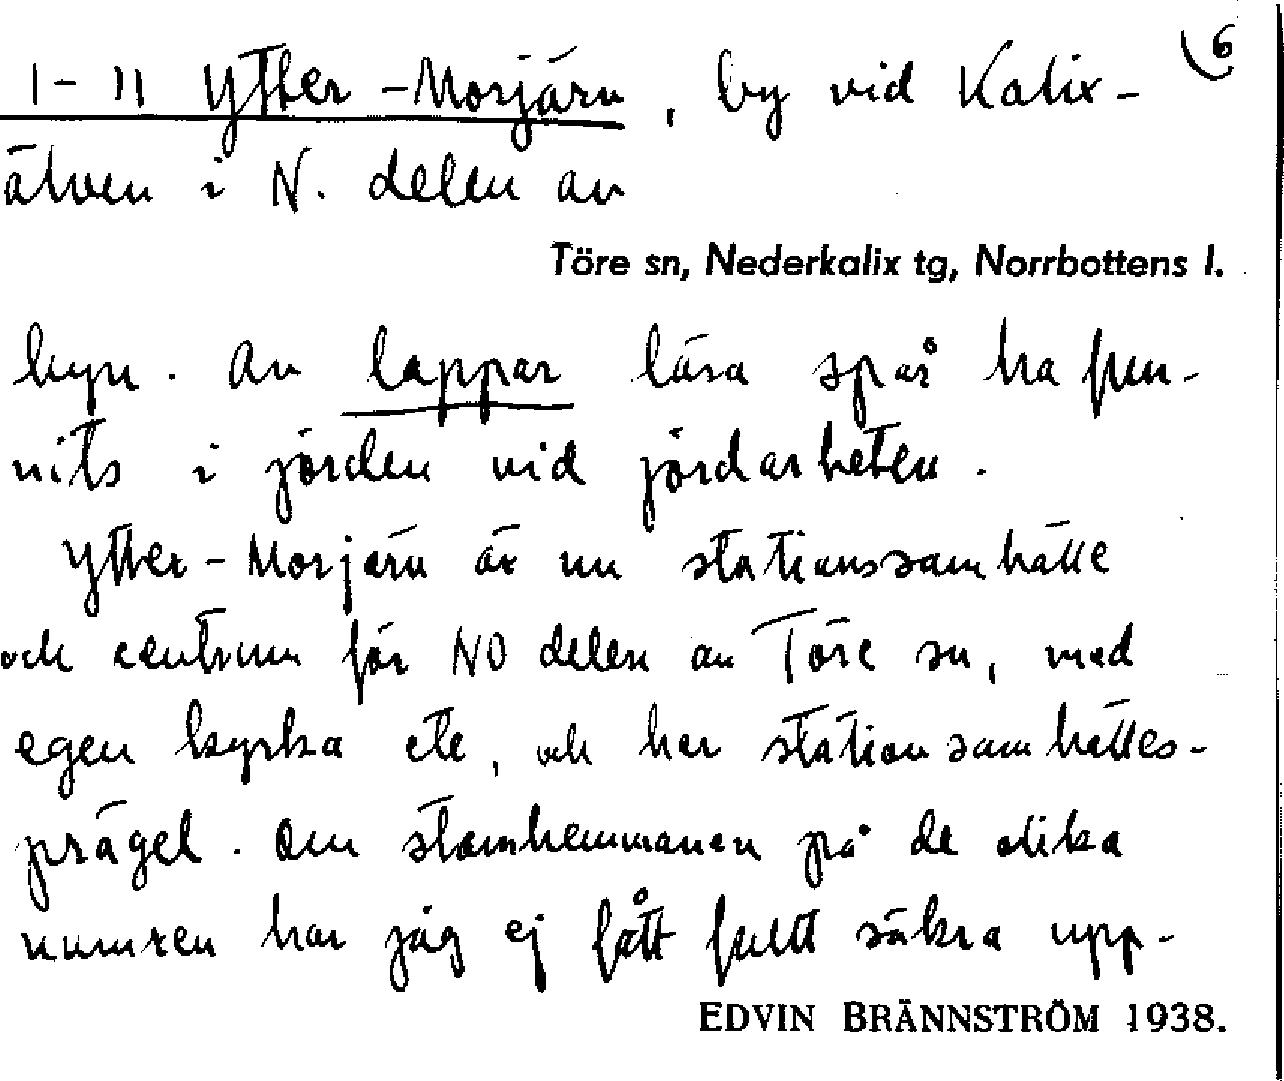 6
1-11 Ytter-Morjärv, by vid Kalix-
älven i N. delen av
Töre sn, Nederkalix tg, Norrbottens l.
byn. Av lappar lära spår ha fun-
nits i jorden vid jordarbeten.
Ytter-Morjärv är nu stationssamhälle
och centrum för NO delen av Töre sn, med
egen kyrka etc, och har stationsamhälles-
prägel. Om stamhemmanen på de olika
numren har jag ej fått fullt säkra upp-
EDVIN BRÄNNSTRÖM 1938.